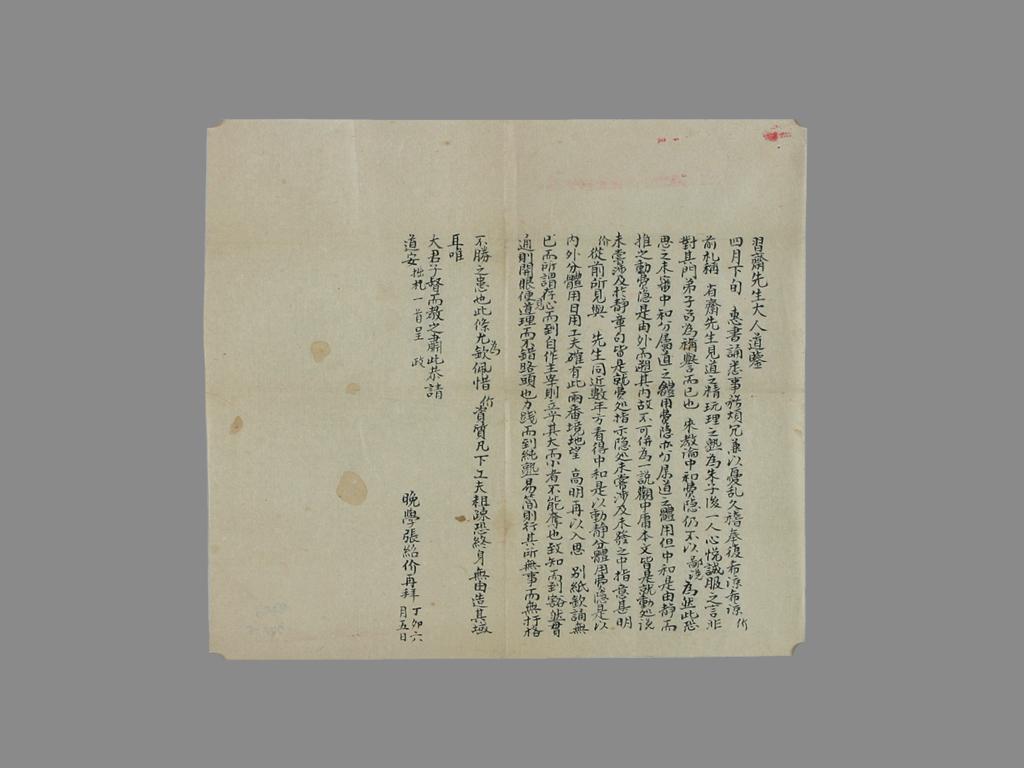 習齋先生大人道鑒
四月下旬 惠書誦悉事務煩冗兼以憂乱久稽奉復布諒布諒 价
前札稱 省齋先生見道之精玩理之熟為朱子後一人心悅誠服之言非
對其門弟子苟為稱譽而已也 來教論中和費隱仍不以鄙說為然此恐
思之未審中和分屬道之體用費隱亦分属道之體用但中和是由静而
推之動費隱是由外而遡其内故不可併為一説觀中庸本文皆是就動処说
未嘗涉及於静章句皆是就費処指示隐処未嘗涉及未發之中指意甚明
价從前所見與 先生同近數年方看得中和是以動静分體用費隱是以
内外分體用日用工夫確有此兩番境地望 高明再以入思 别紙欽誦無
已而所謂存心而到自作主宰則立乎其大而小者不能奪也致知而到豁然貫
通則開眼便見道理而不錯路頭也力践而到純熟易简則行其所無事而無扞格
不勝之患也此條尤為欽佩惜 价資質凡下工夫粗疎恐終身無由造其域
耳唯
大君子督而教之肅此恭請
道安 拙札一首呈 政
晚學張紹价再拜 丁卯六
月五日